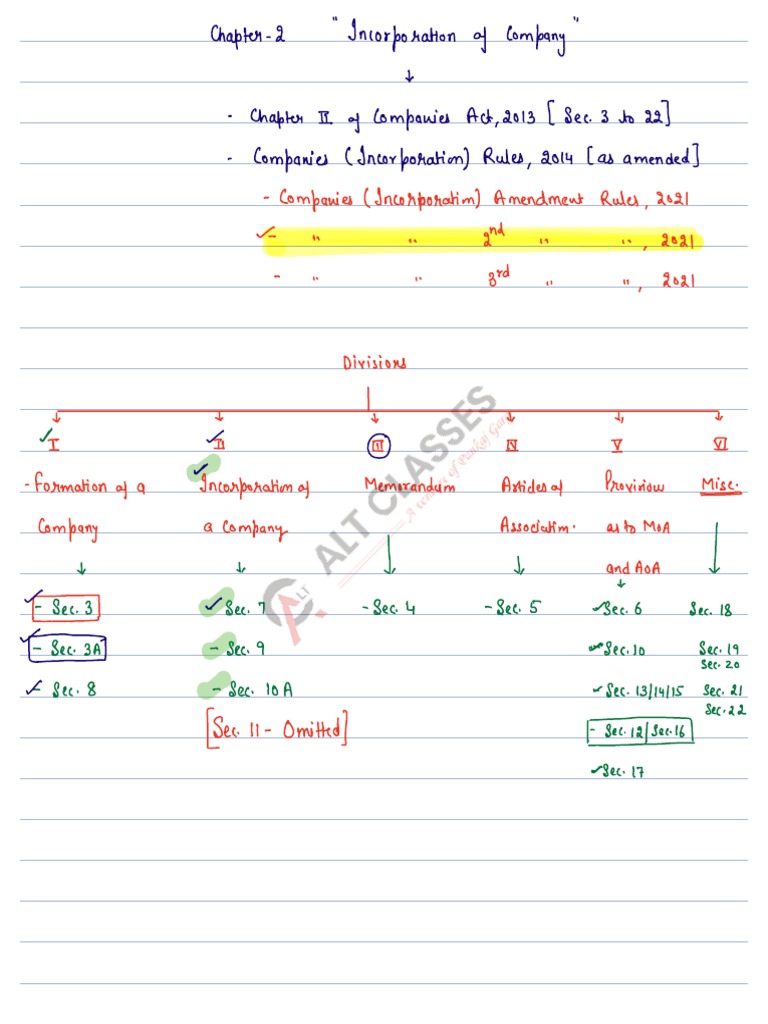 Chapter-2 "Incorporation of Company"
↓
- Chapter II of Companies Act, 2013 [Sec. 3 to 22]
- Companies (Incorporation) Rules, 2014 [as amended]
- Companies (Incorporation) Amendment Rules, 2021
✓- " " 2nd " ", 2021
- " " 3rd " ", 2021
Divisions
✓ I ✓ II III IV V VI
- Formation of a ✓ Incorporation of Memorandum Articles of Provision Misc.
Company a Company Association. as to MoA
and AoA
✓ - Sec. 3 ✓ Sec. 7 - Sec. 4 - Sec. 5 ✓ Sec. 6 Sec. 18
✓ - Sec. 3A - Sec. 9 ✓ Sec. 10 Sec. 19
Sec. 20
✓ Sec. 8 - Sec. 10A ✓ Sec. 13/14/15 Sec. 21
Sec. 22
[Sec. 11 - Omitted] - Sec. 12/Sec. 16
✓ Sec. 17
ALT CLASSES
A venture of Pankaj Garg
ALT